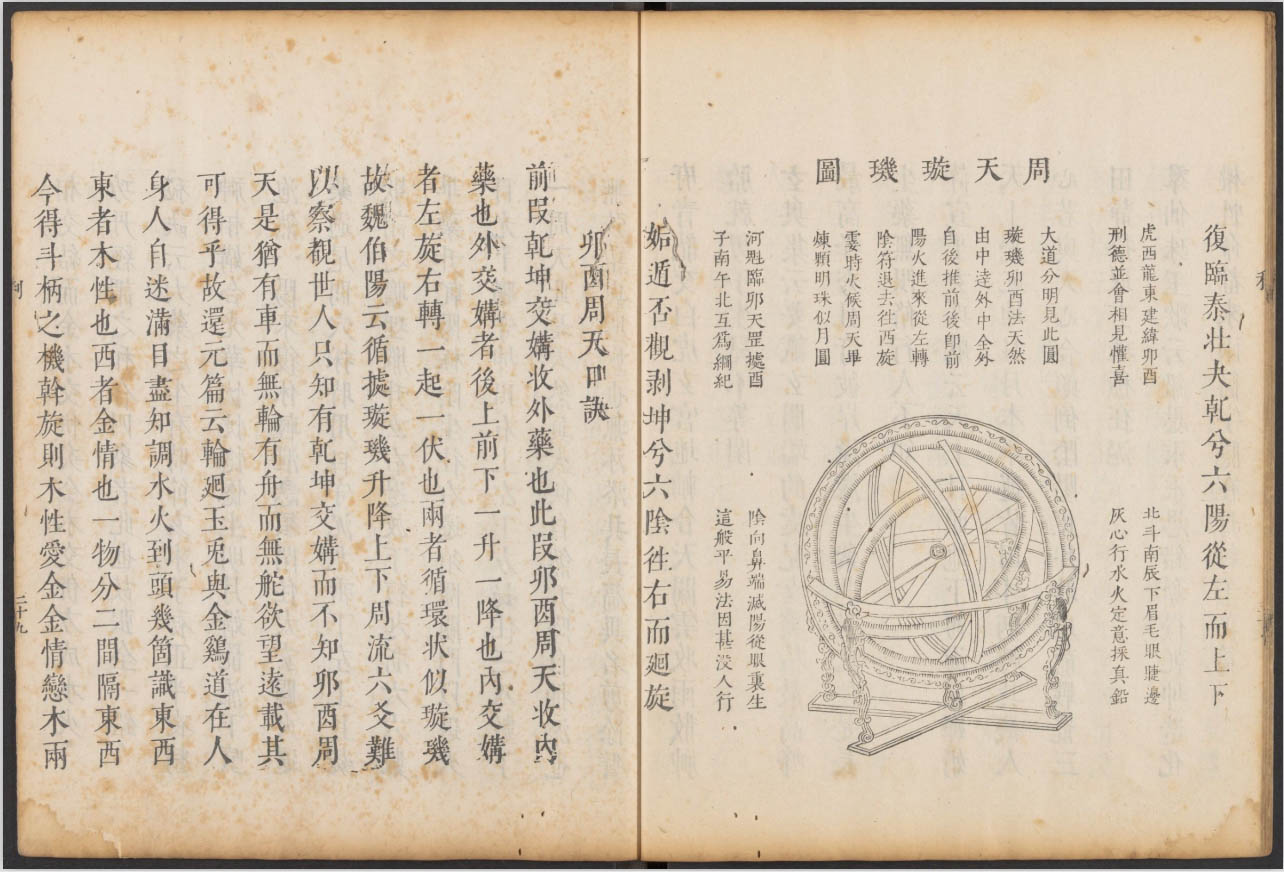 周天璇璣圖
復臨泰壯夬乹兮六陽從左而上下
虎西龍東建緯卯酉
刑德並會相見懽喜
北斗南辰下眉毛眼睫邊
灰心行水火定意採真鉛
大道分明見此圓
璇璣卯酉法天然
由中逹外中全外
自後推前後卽前
陽火進來從左轉
陰符退去徃西旋
霎時火候周天畢
煉顆明珠似月圓
河魁臨卯天罡據酉
子南午北互爲綱紀
陰向鼻端滅陽從眼裏生
這般平易法因甚没人行
姤遁否觀剥坤兮六陰徃右而廻旋
卯酉周天口訣
前叚乹坤交媾收外藥也此叚卯酉周天收内
藥也外交媾者後上前下一升一降也內交媾
者左旋右轉一起一伏也兩者循環状似璇璣
故魏伯陽云循據璇璣升降上下周流六爻難
以察觀世人只知有乹坤交媾而不知卯酉周
天是猶有車而無輪有舟而無舵欲望遠載其
可得乎故還元篇云輪廻玉兎與金鷄道在人
身人自迷滿目盡知調水火到頭幾箇識東西
東者木性也西者金情也一物分二間隔東西
今得斗柄之機斡旋則木性愛金金情戀木兩
二十九